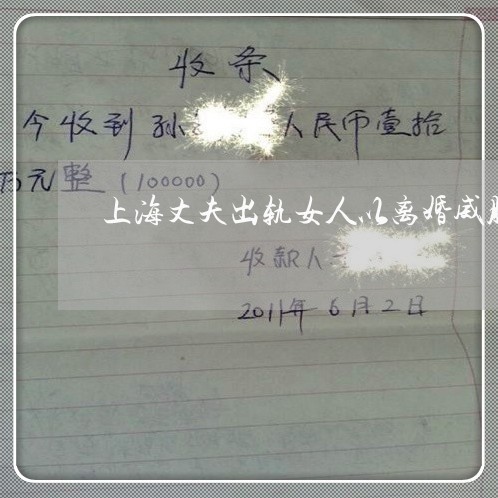 收条
今收到孙 人民币壹拾
万元整(100000)
上海丈夫出轨女人以离婚威
收款人
2011年6月2日